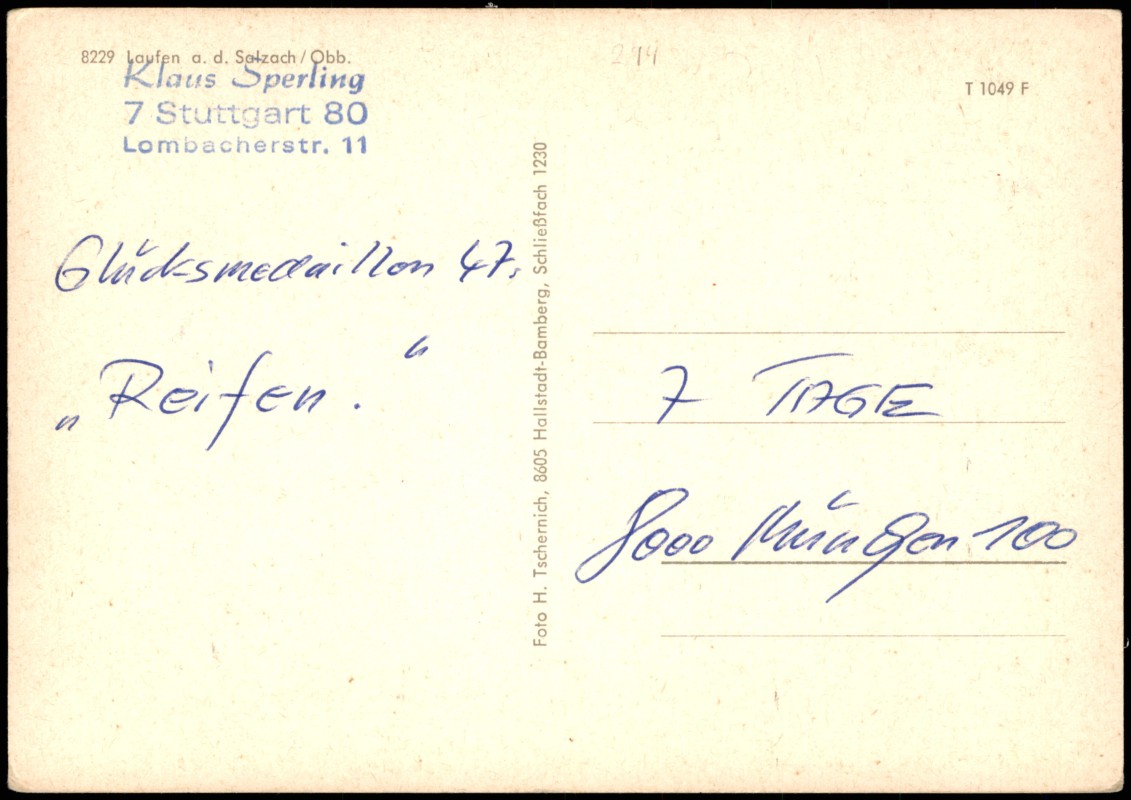 8229 Laufen a. d. Salzach/Obb.
Klaus Sperling
7 Stuttgart 80
Lombacherstr. 11
Glücksmedaillon 47.
„Reifen."
Foto H. Tschernich, 8605 Hallstadt-Bamberg, Schließfach 1230
244
T 1049 F
7 TAGE
8000 München 100